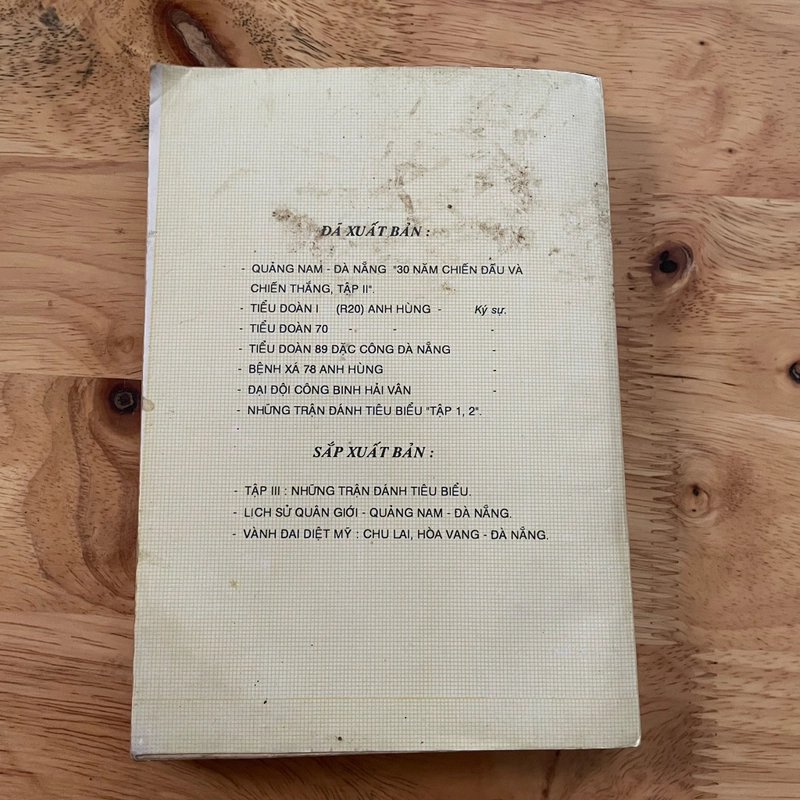 ĐÃ XUẤT BẢN :
- QUẢNG NAM - ĐÀ NẴNG "30 NĂM CHIẾN ĐẤU VÀ
CHIẾN THẮNG, TẬP II".
- TIỂU ĐOÀN I (R20) ANH HÙNG - Ký sự.
- TIỂU ĐOÀN 70 - - -
- TIỂU ĐOÀN 89 ĐẶC CÔNG ĐÀ NẴNG -
- BỆNH XÁ 78 ANH HÙNG -
- ĐẠI ĐỘI CÔNG BINH HẢI VÂN -
- NHỮNG TRẬN ĐÁNH TIÊU BIỂU "TẬP 1, 2".
SẮP XUẤT BẢN :
- TẬP III : NHỮNG TRẬN ĐÁNH TIÊU BIỂU.
- LỊCH SỬ QUÂN GIỚI - QUẢNG NAM - ĐÀ NẴNG.
- VÀNH ĐAI DIỆT MỸ : CHU LAI, HÒA VANG - ĐÀ NẴNG.